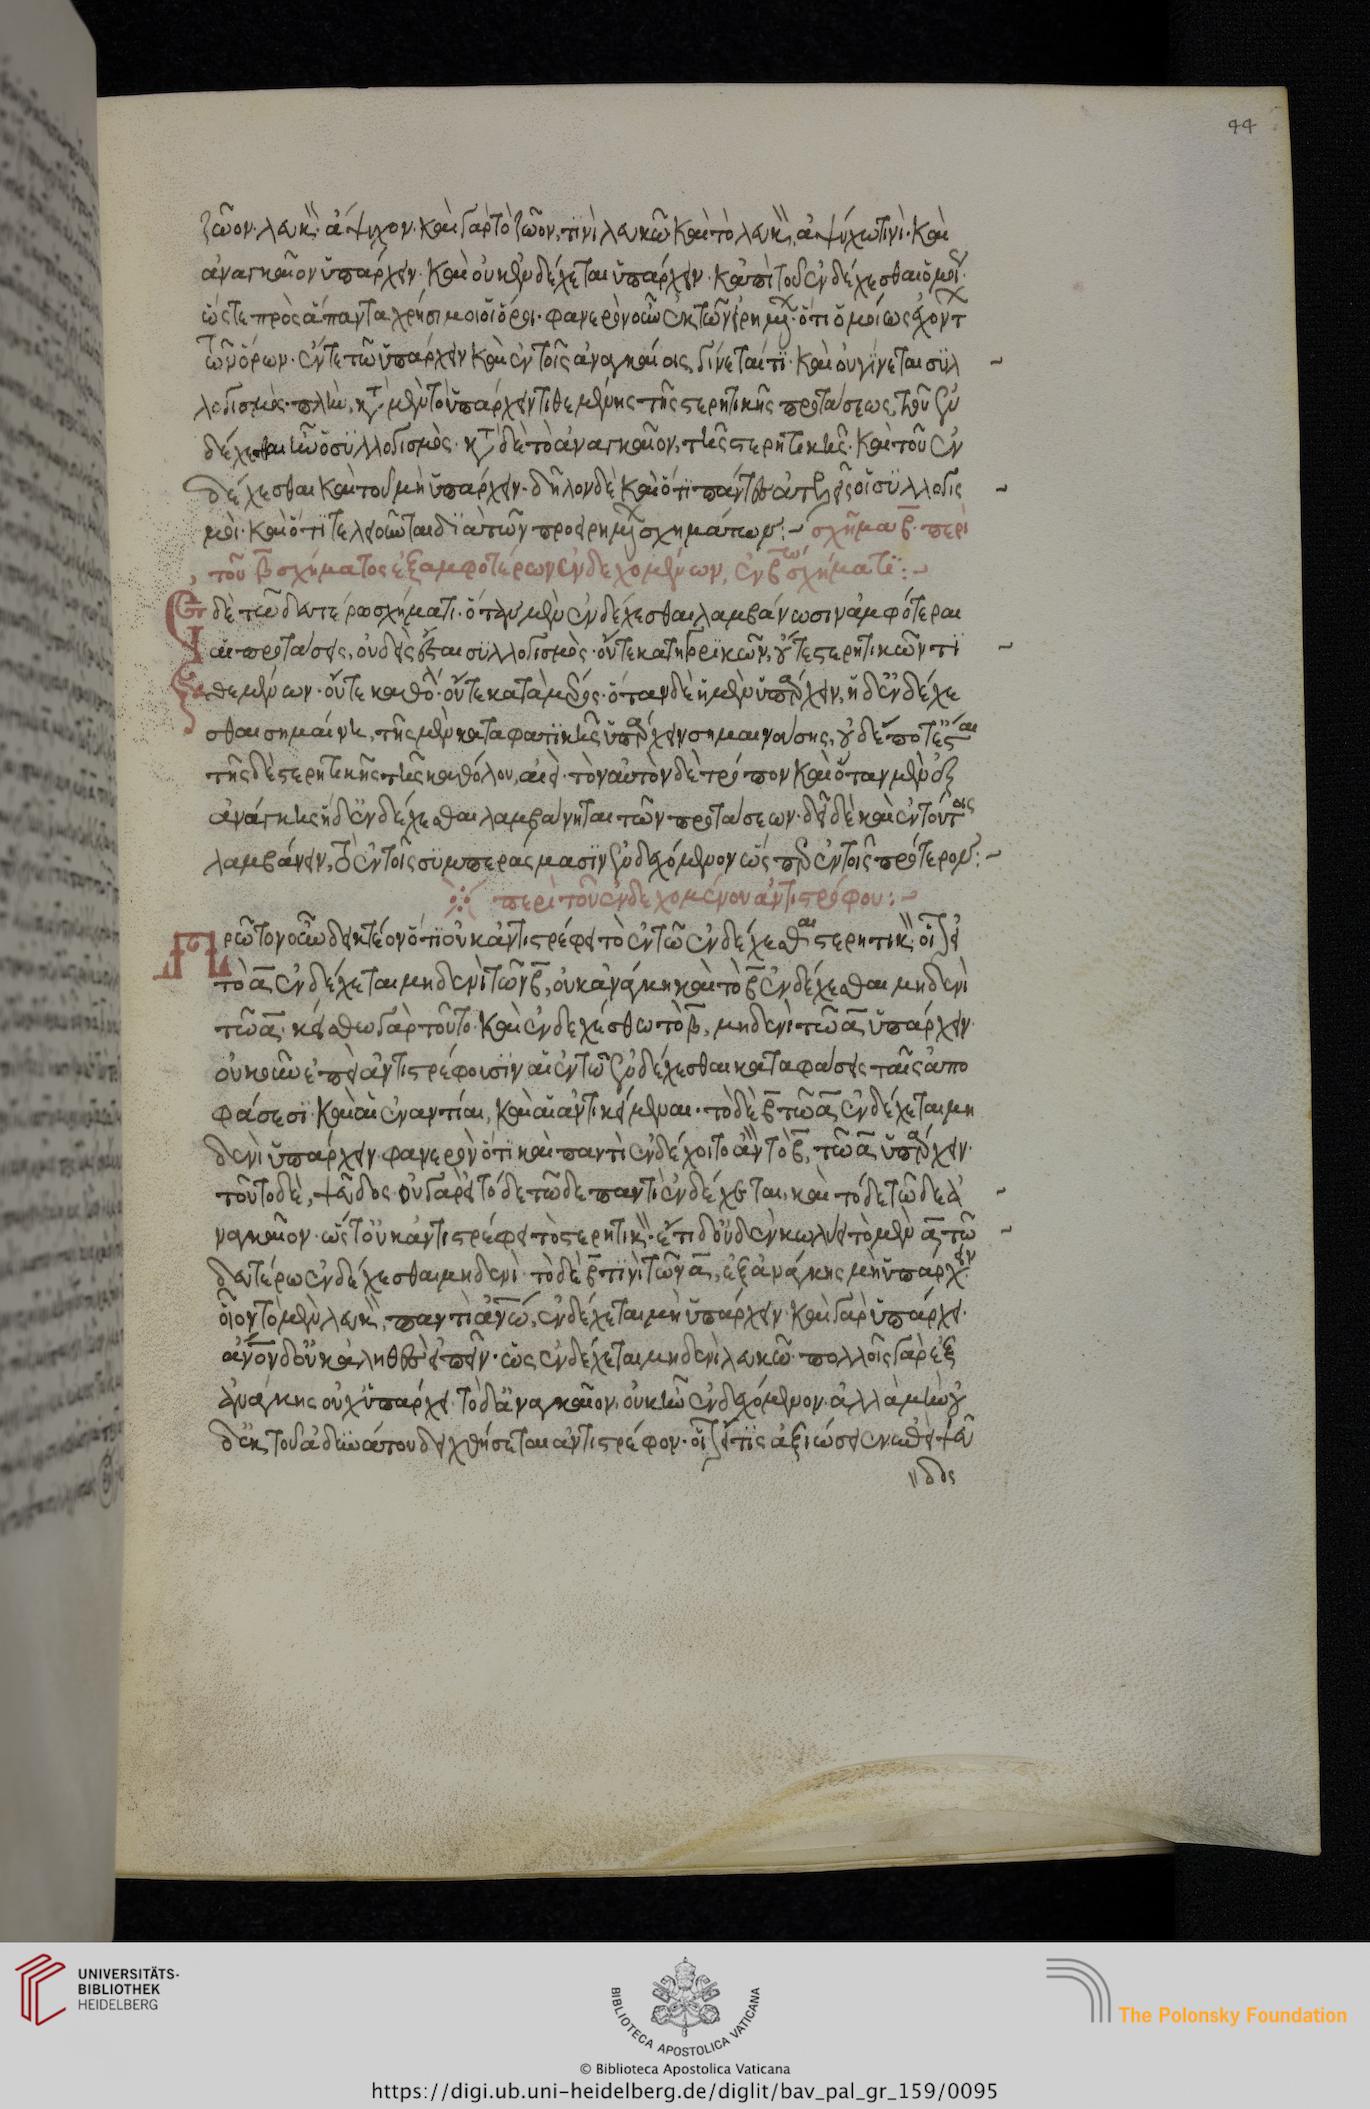 44
ζῶον· λευκ· ἄψυχον· καὶ γὰρ τὸ ζῶον, τινὶ λευκῶ καὶ τὸ λευκ, ἀψύχω τινὶ· καὶ
ἀναγκαῖον ὑπάρχειν· καὶ οὐκ ἐνδέχεται ὑπάρχειν· κἀπὶ τοῦ ἐνδέχεσθαι ὁμοί·
ὥστε πρὸς ἅπαντα χρήσιμοι οἱ ὅροι· φανερὸν οὖν ἐκ τῶν εἰρημ· ὅτι ὁμοίως ἐχοντ
τῶν ὅρων· ἔν τε τῶ ὑπάρχειν καὶ ἐν τοῖς ἀναγκαίοις, γίνεταί τϊ· καὶ οὐ γίνεται συλ
λογισμὸς· πλὴν, κτ μὲν τὸ ὑπάρχειν τιθεμένης τῆς στερητικῆς προτάσεως, τοῦ ἐν
δέχεσθαι ἦν ὁ συλλογισμὸς· κτ δὲ τὸ ἀναγκαῖον, τῆς στερητικῆς· καὶ τοῦ ἐν
δέχεσθαι καὶ τοῦ μὴ ὑπάρχειν· δῆλον δὲ καὶ ὅτι πάντες ἀτελεῖς οἱ συλλογισ
μοὶ· καὶ ὅτι τελειοῦνται διὰ τῶν προειρημ σχημάτων:– σχῆμα β· περὶ
τοῦ β σχήματος ἐξ ἀμφοτέρων ἐνδεχομένων, ἐν τῶ β σχήματι:–
Εν δὲ τῶ δευτέρω σχήματι· ὅταν μὲν ἐνδέχεσθαι λαμβάνωσιν ἀμφότεραι
αἱ προτάσεις, οὐδεὶς ἔσται συλλογισμὸς· οὔτε κατηγορικῶν, οὔτε στερητικῶν τι
θεμένων· οὔτε καθό· οὔτε κατὰ μέρος· ὅταν δὲ ἡ μὲν ὑπάρχειν, ἡ δ' ἐνδέχε
σθαι σημαίνη, τῆς μὲν καταφατικῆς ὑπάρχειν σημαινούσης, οὐδέποτ' ἔσται
τῆς δὲ στερητικῆς τῆς καθόλου, ἀεὶ· τὸν αὐτὸν δὲ τρόπον καὶ ὅταν μὲν ἐξ
ἀνάγκης ἡ δ' ἐνδέχεσθαι λαμβάνηται τῶν προτάσεων· δεῖ δὲ καὶ ἐν τούτοις
λαμβάνειν, τὸ ἐν τοῖς συμπεράσμασιν ἐνδεχόμενον ὥσπερ ἐν τοῖς πρότερον:–
περὶ τοῦ ἐνδεχομένου ἀντιστρόφου:–
Πρῶτον οὖν δεικτέον ὅτι οὐκ ἀντιστρέφει τὸ ἐν τῶ ἐνδέχεσθαι στερητικ· οἷ εἰ
τὸ α ἐνδέχεται μηδενὶ τῶν β, οὐκ ἀνάγκη καὶ τὸ β ἐνδέχεσθαι μηδενὶ
τῶ α· κείσθω γὰρ τοῦτο· καὶ ἐνδεχέσθω τὸ β, μηδενὶ τῶ α ὑπάρχειν·
οὐκοῦν ἐπεὶ ἀντιστρέφουσιν αἱ ἐν τῶ ἐνδέχεσθαι καταφάσεις ταῖς ἀπο
φάσεσι· καὶ αἱ ἐναντίαι, καὶ αἱ ἀντικείμεναι· τὸ δὲ β τῶ α ἐνδέχεται μη
δενὶ ὑπάρχειν· φανερὸν ὅτι καὶ παντὶ ἐνδέχοιτο ἂν τὸ β, τῶ α ὑπάρχειν·
τοῦτο δὲ, ψεῦδος· οὐ γὰρ εἰ τόδε τῶδε παντὶ ἐνδέχεται, καὶ τόδε τῶδε ἀ
ναγκαῖον· ὥστ' οὐκ ἀντιστρέφει τὸ στερητικ· ἔτι δ' οὐδὲν κωλύει τὸ μὲν α τῶ
δευτέρω ἐνδέχεσθαι μηδενὶ· τὸ δὲ β τινὶ τῶν α, ἐξ ἀνάγκης μὴ ὑπάρχειν·
οἷον τὸ μὲν λευκ, παντὶ ἀνω, ἐνδέχεται μὴ ὑπάρχειν· καὶ γὰρ ὑπάρχει·
ἄνον δ' οὐκ ἀληθὲς εἰπεῖν· ὡς ἐνδέχεται μηδενὶ λευκῶ· πολλοῖς γὰρ ἐξ
ἀνάγκης οὐχ ὑπάρχει· τὸ δ' ἀναγκαῖον, οὐκ ἦν ἐνδεχόμενον· ἀλλὰ μὴν οὐ
δ' ἐκ τοῦ ἀδυνάτου δειχθήσεται ἀντιστρέφον· οἷ εἴ τις ἀξιώσειεν ἐπεὶ ψεῦ
δος
UNIVERSITÄTS-
BIBLIOTHEK
HEIDELBERG
BIBLIOTECA APOSTOLICA VATICANA
The Polonsky Foundation
© Biblioteca Apostolica Vaticana
https://digi.ub.uni-heidelberg.de/diglit/bav_pal_gr_159/0095